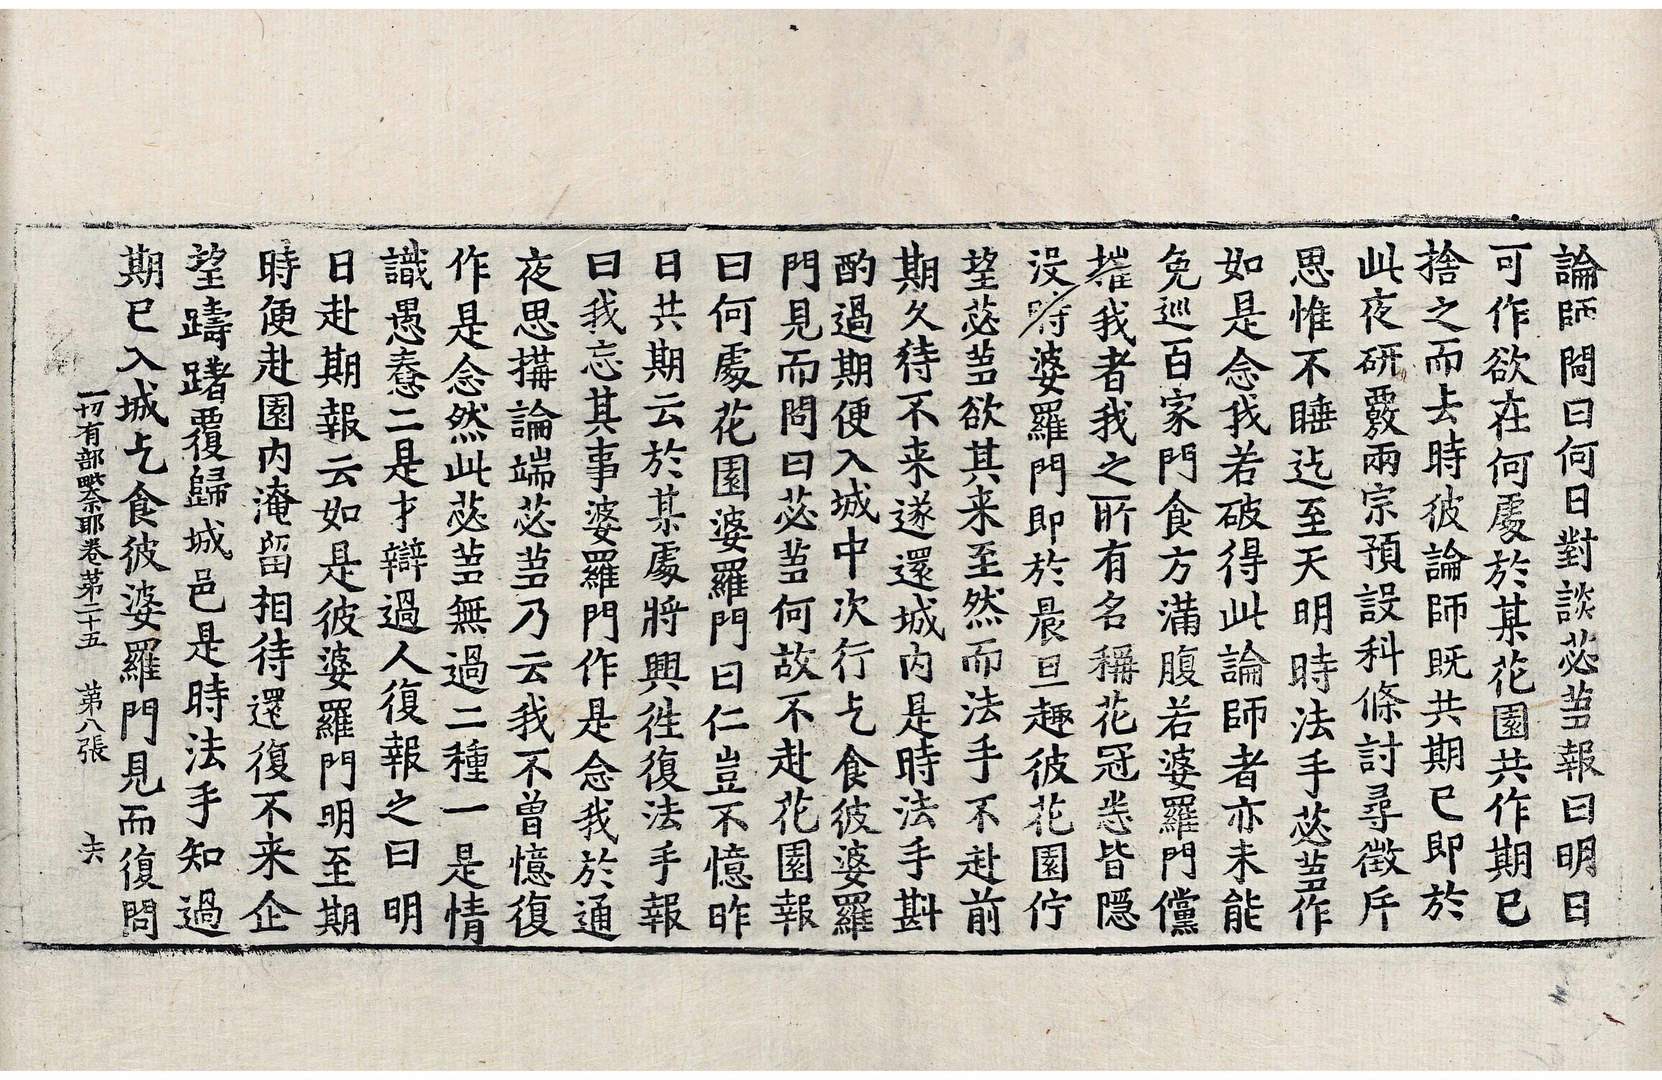 論師問曰何日對談苾芻報曰明日
可作欲在何處於某花園共作期已
捨之而去時彼論師既共期已即於
此夜研覈兩宗預設科條討尋徵斥
思惟不睡迄至天明時法手苾芻作
如是念我若破得此論師者亦未能
免巡百家門食方滿腹若婆羅門儻
摧我者我之所有名稱花冠悉皆隱
没時婆羅門即於晨旦趣彼花園佇
望苾芻欲其来至然而法手不赴前
期久待不来遂還城内是時法手斟
酌過期便入城中次行乞食彼婆羅
門見而問曰苾芻何故不赴花園報
曰何處花園婆羅門曰仁豈不憶昨
日共期云於某處將興徃復法手報
曰我忘其事婆羅門作是念我於通
夜思搆論端苾芻乃云我不曾憶復
作是念然此苾芻無過二種一是情
識愚惷二是才辯過人復報之曰明
日赴期報云如是彼婆羅門明至期
時便赴園内淹留相待還復不来企
望躊躇覆歸城邑是時法手知過
期已入城乞食彼婆羅門見而復問
一切有部毗奈耶卷第二十五　第八張　去